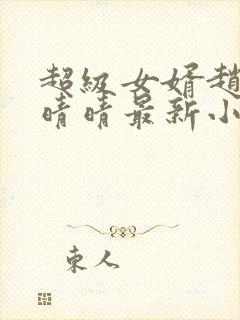 超級女婿趙
晴晴最新小
東人